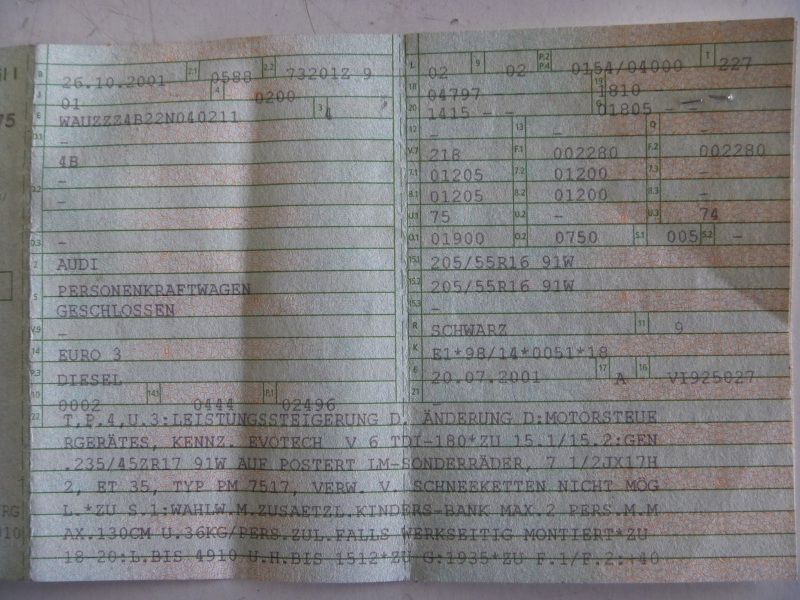 B 26.10.2001 2.1 0588 2.2 73201Z 9
J 01 4 0200
E WAUZZZ4B22N040211 3 4
D.1 -
4B
-
D.2 -
-
D.3 -
2 AUDI
5 PERSONENKRAFTWAGEN
GESCHLOSSEN
V.9 -
14 EURO 3
P.3 DIESEL
10 0002 14.1 0444 P.1 02496
L 02 9 02 P.2 P.4 0154/04000 T 227
18 04797 19 1810
20 1415 - - G 01805 - -
12 - 13 - Q -
V.7 218 F.1 002280 F.2 002280
7.1 01205 7.2 01200 7.3 -
8.1 01205 8.2 01200 8.3 -
U.1 75 U.2 - U.3 74
O.1 01900 O.2 0750 S.1 005 S.2 -
15.1 205/55R16 91W
15.2 205/55R16 91W
15.3 -
R SCHWARZ 11 9
K E1*98/14*0051*18
6 20.07.2001 17 A 16 VI925027
21 -
22 T,P.4,U.3:LEISTUNGSSTEIGERUNG D. ÄNDERUNG D:MOTORSTEUE
RGERÄTES, KENNZ. EVOTECH V 6 TDI-180*ZU 15.1/15.2:GEN
.235/45ZR17 91W AUF POSTERT LM-SONDERRÄDER, 7 1/2JX17H
2, ET 35, TYP PM 7517, VERW. V. SCHNEEKETTEN NICHT MÖG
L.*ZU S.1:WAHLW.M.ZUSAETZL.KINDERS-BANK MAX.2 PERS.M.M
AX.130CM U.36KG/PERS.ZUL.FALLS WERKSEITIG MONTIERT*ZU
18-20:L.BIS 4910 U.H.BIS 1512*ZU G:1935*ZU F.1/F.2:+40